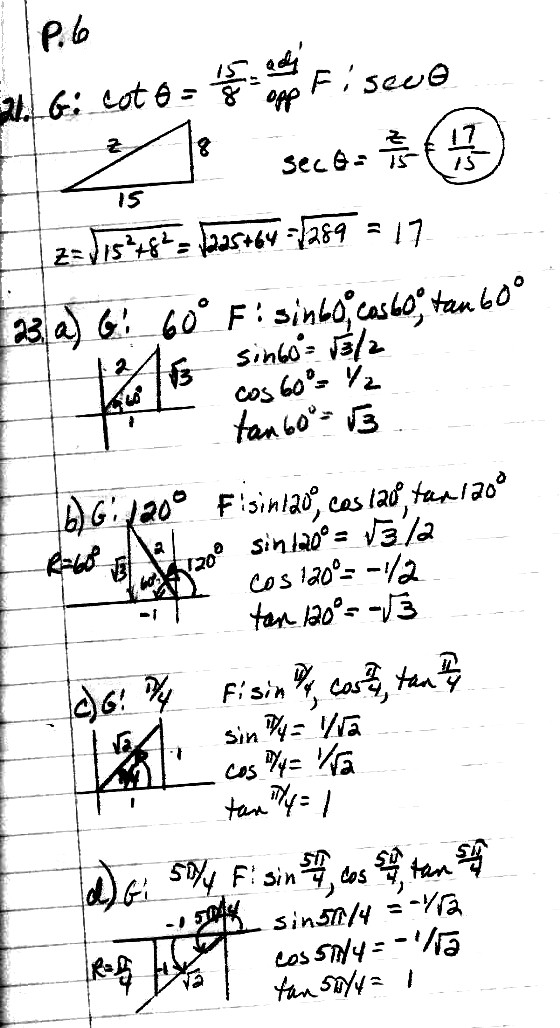 P.6
21. G: cot θ = 15/8 = adj/opp F: sec θ
z 8
15
sec θ = z/15 = 17/15
z = √15²+8² = √225+64 = √289 = 17
23. a) G: 60° F: sin60°, cos60°, tan60°
2 √3 60° 1
sin60° = √3/2
cos60° = 1/2
tan60° = √3
b) G: 120° F: sin120°, cos120°, tan120°
R=60° √3 2 60° 120° -1
sin120° = √3/2
cos120° = -1/2
tan120° = -√3
c) G: π/4 F: sin π/4, cos π/4, tan π/4
√2 π/4 1 1
sin π/4 = 1/√2
cos π/4 = 1/√2
tan π/4 = 1
d) G: 5π/4 F: sin 5π/4, cos 5π/4, tan 5π/4
-1 5π/4
R=π/4 -1 √2
sin5π/4 = -1/√2
cos5π/4 = -1/√2
tan5π/4 = 1